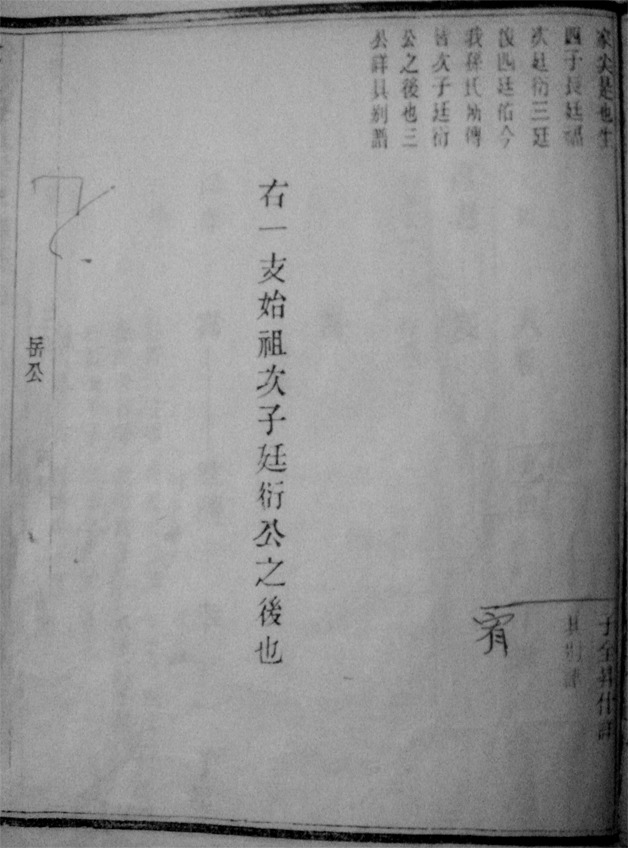 家尖是也生
四子長廷福
次廷衍三廷
俊四廷佑今
我孫氏始傳
皆次子廷衍
公之後也三
公詳具別譜
子全昇仕
具別譜
右一支始祖次子廷衍公之後也
岳公